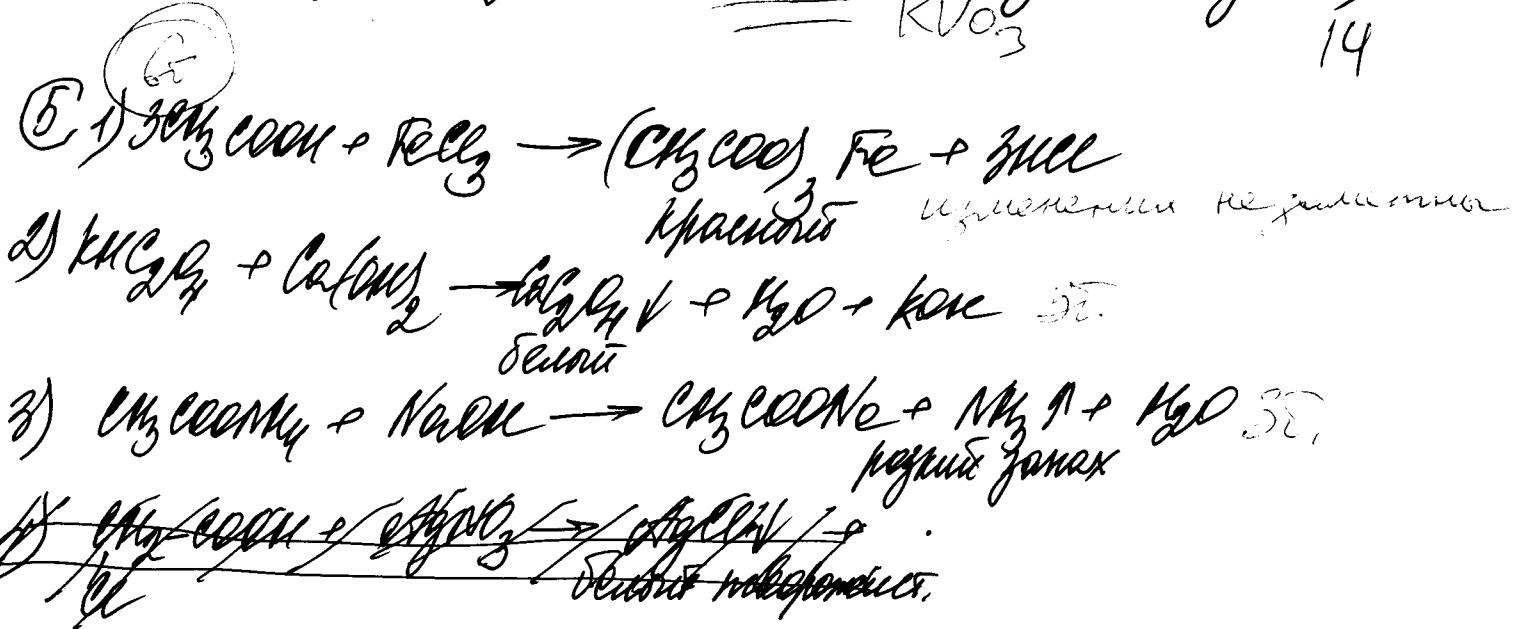 KVO₃
14
6б
⑤ 1) 3CH₃COOH + FeCl₃ → (CH₃COO)₃Fe + 3HCl
красный изменения незаметны
2) KHC₂O₄ + Ca(OH)₂ → CaC₂O₄↓ + H₂O + KOH 3б.
белый
3) CH₃COONH₄ + NaOH → CH₃COONa + NH₃↑ + H₂O 3б.
резкий запах
4) CH₂-COOH + AgNO₃ → AgCl↓ +
Cl белый творожист.